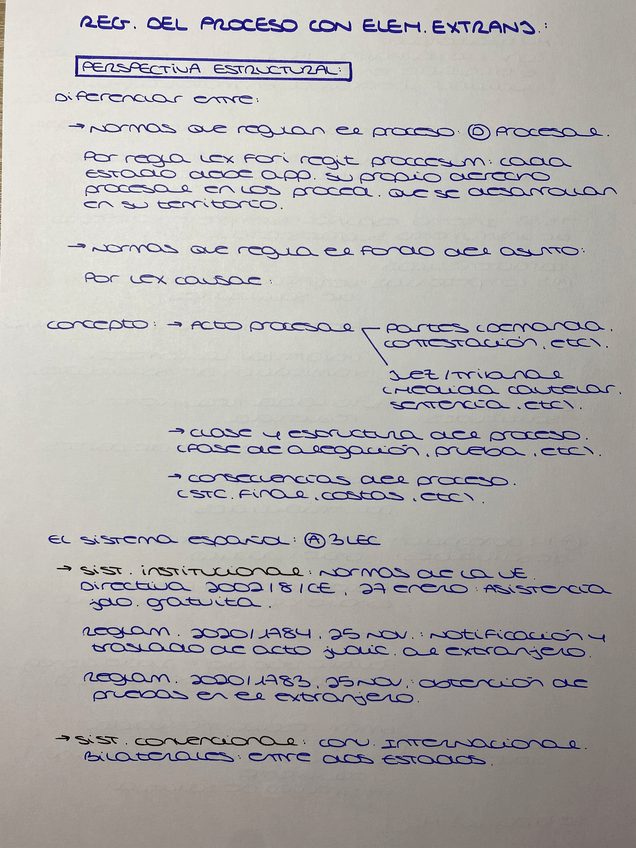 REG. DEL PROCESO CON ELEM. EXTRANJ.:
PERSPECTIVA ESTRUCTURAL:
Diferenciar entre:
→ Normas que regulan el proceso: Ⓓ Procesal.
Por regla Lex Fori regit proccesum: cada
Estado debe app. su propio derecho
procesal en los proced. que se desarrollan
en su territorio.
→ Normas que regula el fondo del asunto:
Por Lex causae:
Concepto: → Acto procesal — Partes (demanda,
contestación, etc).
Juez/Tribunal
(medida cautelar,
sentencia, etc).
→ Clase y estructura del proceso.
(fase de alegación, prueba, etc).
→ Consecuencias del proceso.
(STC. Final, costas, etc).
El sistema español: Ⓐ 3LEC
→ Sist. institucional: Normas de la UE.
Directiva 2002/8/CE, 27 enero: Asistencia
jdo. gratuita.
Reglam. 2020/1784, 25 Nov.: Notificación y
traslado de acto judic. al extranjero.
Reglam. 2020/1783, 25 Nov: obtención de
pruebas en el extranjero.
→ Sist. convencional: Con. Internacional.
Bilaterales: entre dos Estados.